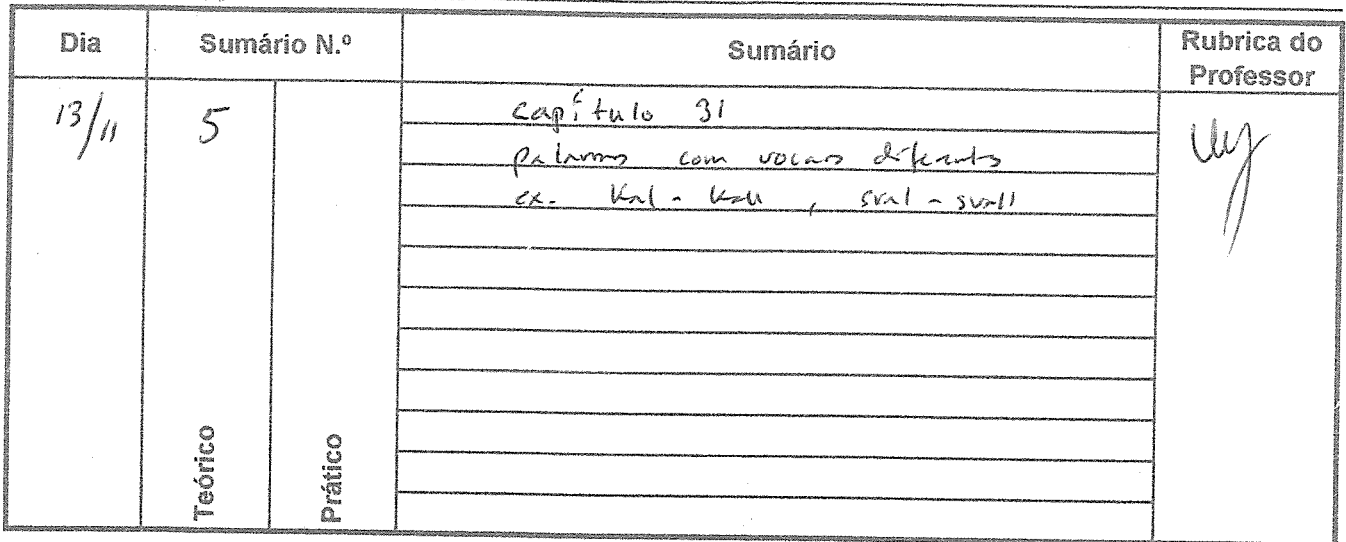 Dia Sumário N.º Sumário Rubrica do Professor
13/11 5 Capítulo 31
palavras com vocais diferentes
ex. Kal - Kall, sval - svall
Teórico Prático